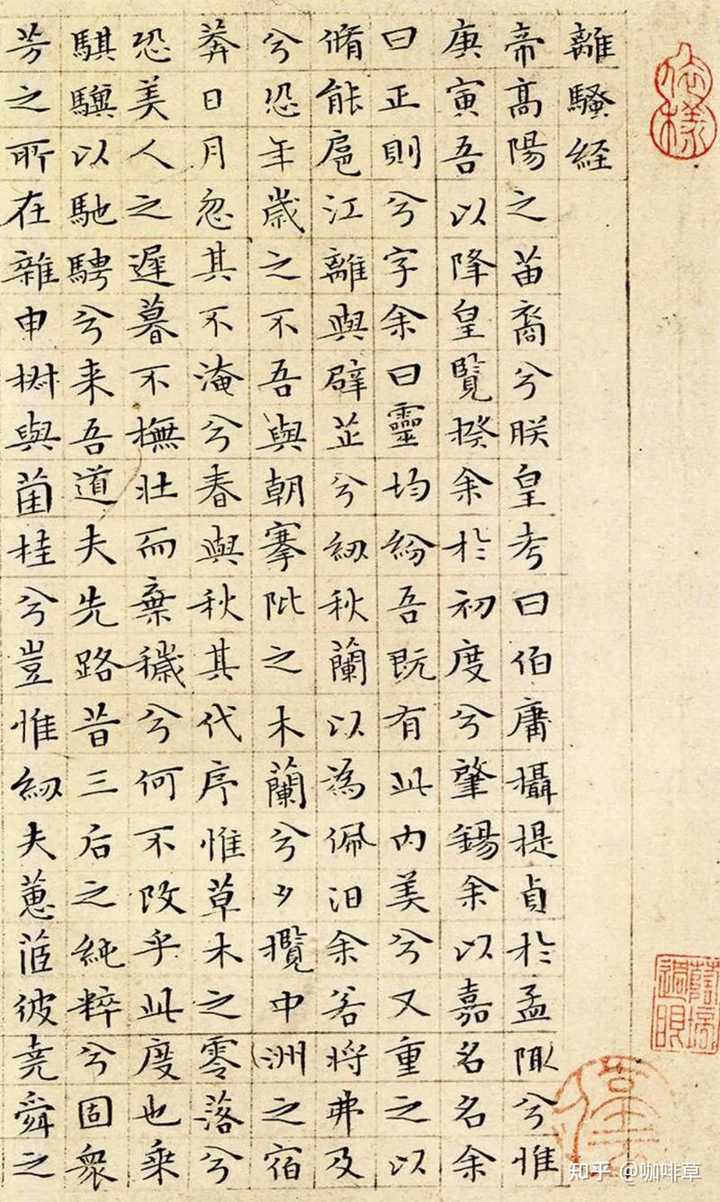 離騷経
帝高陽之苗裔兮朕皇考曰伯庸攝提貞於孟陬兮惟
庚寅吾以降皇覽揆余於初度兮肇錫余以嘉名名余
曰正則兮字余曰靈均紛吾既有此內美兮又重之以
脩能扈江離與辟芷兮紉秋蘭以為佩汩余若將弗及
兮恐年歲之不吾與朝搴阰之木蘭兮夕攬中洲之宿
莽日月忽其不淹兮春與秋其代序惟草木之零落兮
恐美人之遲暮不撫壯而棄穢兮何不改乎此度也乘
騏驥以馳騁兮来吾道夫先路昔三后之純粹兮固衆
芳之所在雜申椒與菌桂兮豈惟紉夫蕙茝彼堯舜之
知乎 @咖啡草